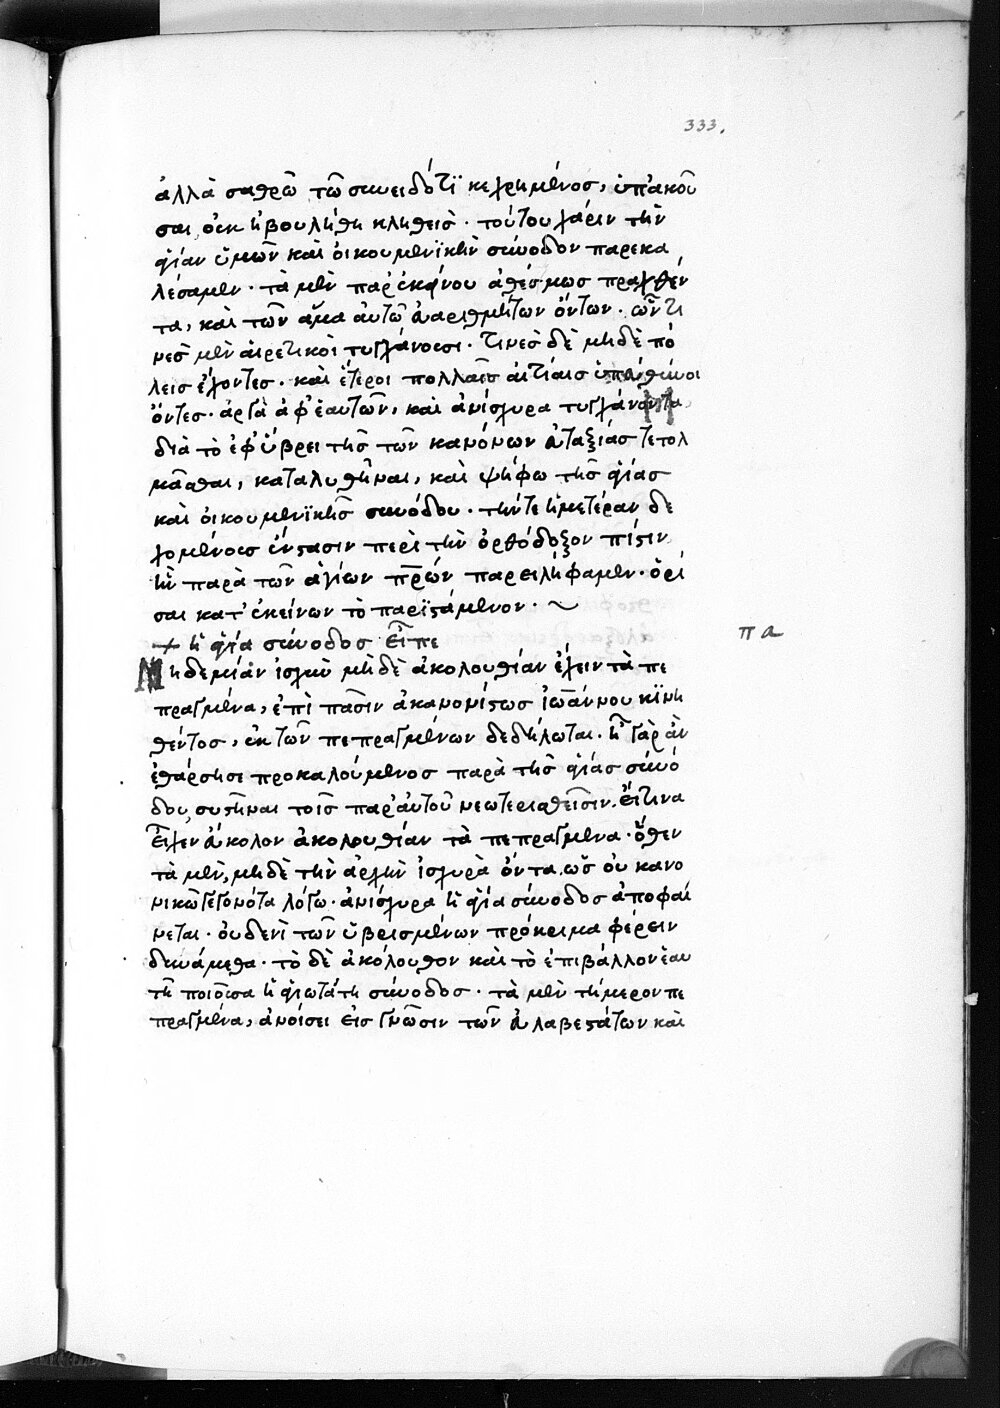 333.
ἀλλὰ σαθρῶ τῶ συνειδότϊ κεχρημένος, ὑπακοῦ
σαι οὐκ ἠβουλήθη κληθεὶς · τούτου χάριν τὴν
ἁγίαν ὑμῶν καὶ οἰκουμενϊκὴν σύνοδον παρεκα
λέσαμεν · τὰ μὲν παρ' ἐκείνου ἀθέσμως πραχθέν
τα, καὶ τῶν ἅμα αὐτῶ εὐαριθμήτων ὄντων · ὧν τι
νες μὲν αἱρετικοὶ τυγχάνουσι · τινὲς δὲ μηδὲ πό
λεις ἔχοντες · καὶ ἕτεροι πολλαῖς αἰτίαις ὑπεύθυνοι
ὄντες · ἀργὰ ἀφ' ἑαυτῶν, καὶ ἀνίσχυρα τυγχάνοντα
διὰ τὸ ἐφ' ὕβρει τῆς τῶν κανόνων εὐταξίας τετολ
μῆσθαι, καταλυθῆναι, καὶ ψήφω τῆς ἁγίας
καὶ οἰκουμενϊκῆς συνόδου · τήν τε ἡμετέραν δε
χομένους ἔνστασιν περὶ τὴν ὀρθόδοξον πίστιν
ἣν παρὰ τῶν ἁγίων πρων παρειλήφαμεν · ὁρί
σαι κατ' ἐκείνων τὸ παρϊστάμενον · ~
+ ἡ ἁγία σύνοδος εἶπε
πα
Μηδεμίαν ἰσχὺν μὴ δὲ ἀκολουθίαν ἔχειν τὰ πε
πραγμένα, ἐπὶ πᾶσιν ἀκανονίστως ἰωάννου κϊνη
θέντος, ἐκ τῶν πεπραγμένων δεδήλωται · ἦ γὰρ ἂν
ἐθάρσησε προκαλούμενος παρὰ τῆς ἁγίας συνό
δου, συστῆναι τοῖς παρ' αὐτοῦ νεωτερισθεῖσιν · εἴ τινα
εἶχεν εὔκολον ἀκολουθίαν τὰ πεπραγμένα · ὅθεν
τὰ μὲν, μηδὲ τὴν ἀρχὴν ἰσχυρὰ ὄντα, ὡς οὐ κανο
νικῶ γεγονότα λόγω · ἀνίσχυρα ἡ ἁγία σύνοδος ἀποφαί
νεται · οὐδενὶ τῶν ὑβρισμένων πρόκριμα φέρειν
δυνάμεθα · τὸ δὲ ἀκόλουθον καὶ τὸ ἐπιβάλλον ἑαυ
τῆ ποιοῦσα ἡ ἁγιωτάτη σύνοδος · τὰ μὲν τήμερον πε
πραγμένα, ἀνοίσει εἰς γνῶσιν τῶν εὐλαβεστάτων καὶ